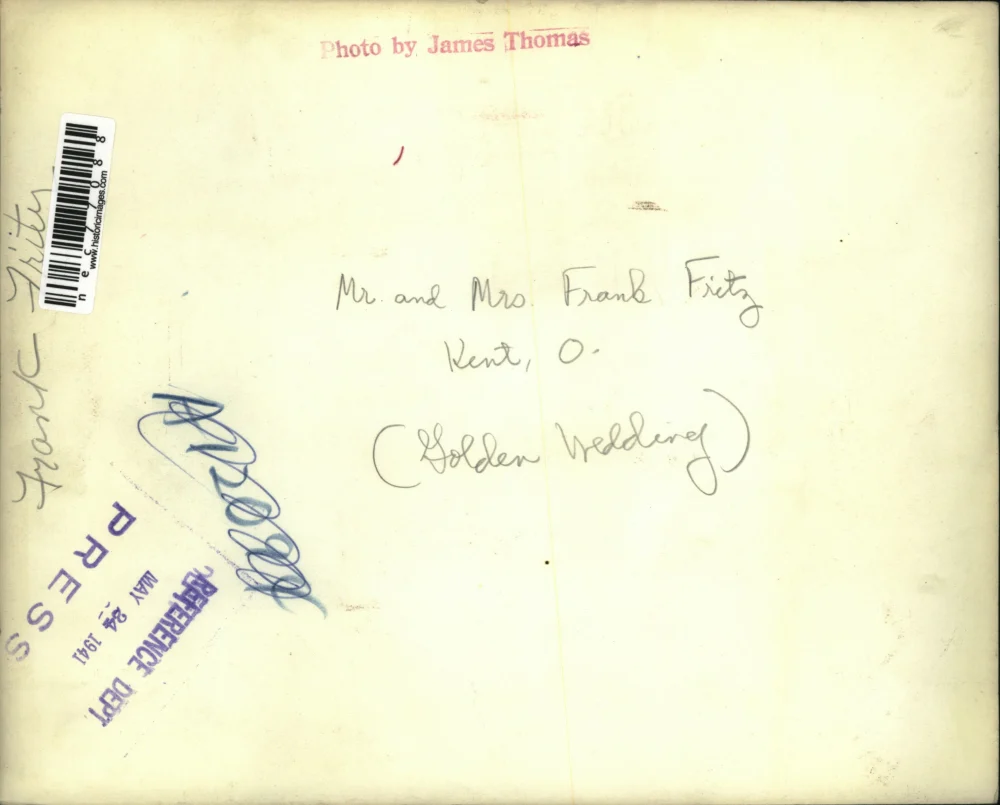 Photo by James Thomas
Mr. and Mrs. Frank Fritz
Kent, O.
(Golden Wedding)
Frank Fritz
www.historicimages.com
PRESS
MAY 24 1941
REFERENCE DEPT